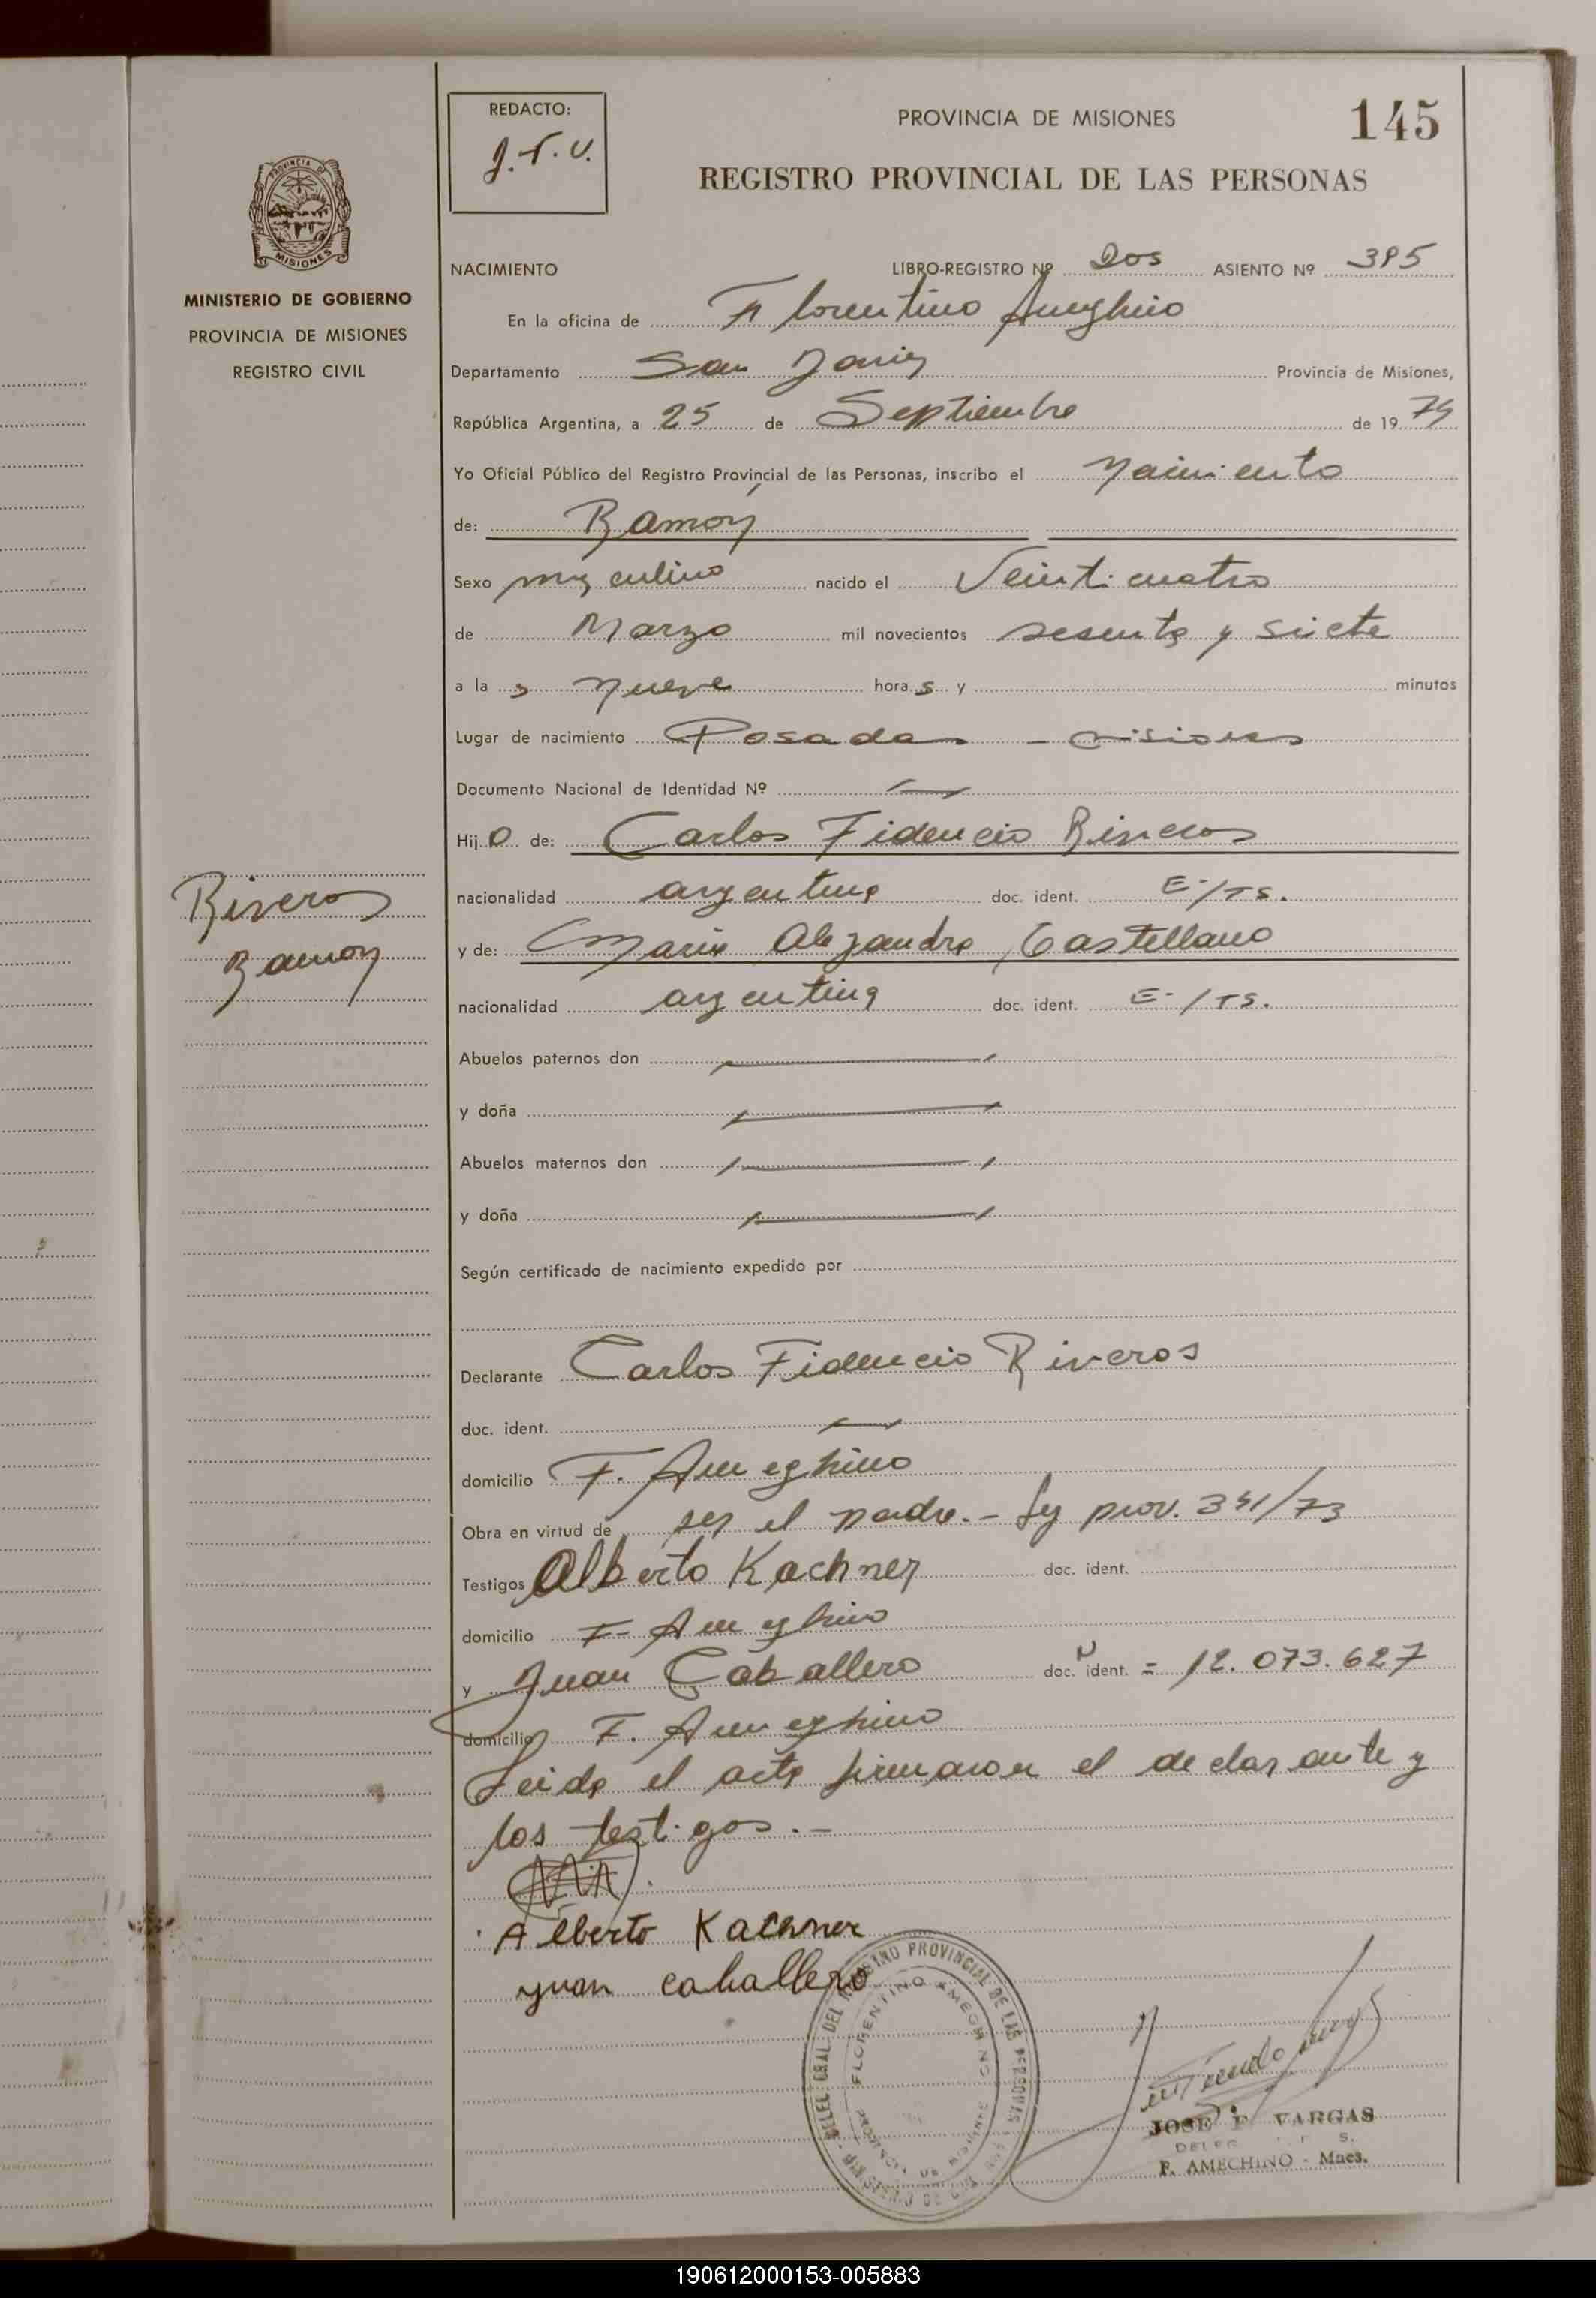 REDACTO:
J.F.V.
PROVINCIA DE MISIONES
145
REGISTRO PROVINCIAL DE LAS PERSONAS
PROVINCIA DE
MISIONES
MINISTERIO DE GOBIERNO
PROVINCIA DE MISIONES
REGISTRO CIVIL
NACIMIENTO LIBRO-REGISTRO Nº Dos ASIENTO Nº 395
En la oficina de Florentino Ameghino
Departamento San Javier Provincia de Misiones,
República Argentina, a 25 de Septiembre de 1974
Yo Oficial Público del Registro Provincial de las Personas, inscribo el Nacimiento
de: Ramón
Sexo masculino nacido el Veinticuatro
de Marzo mil novecientos sesenta y siete
a las nueve horas y minutos
Lugar de nacimiento Posadas - Misiones
Documento Nacional de Identidad Nº
Hijo de: Carlos Fidencio Riveros
nacionalidad argentina doc. ident. E-/TS.
y de: Maria Alejandra Castellano
nacionalidad argentina doc. ident. E-/TS.
Riveros
Ramon
Abuelos paternos don
y doña
Abuelos maternos don
y doña
Según certificado de nacimiento expedido por
Declarante Carlos Fidencio Riveros
doc. ident.
domicilio F. Ameghino
Obra en virtud de ser el padre.- Ley prov. 341/73
Testigos Alberto Kachner doc. ident.
domicilio F- Ameghino
y Juan Caballero doc. ident. = 12.073.627
domicilio F. Ameghino
Leida el acta firmaron el declarante y
los testigos.-
Alberto Kachner
Juan caballero
DELEG. GRAL. DEL REGISTRO PROVINCIAL DE LAS PERSONAS
FLORENTINO AMEGHINO
PROVINCIA DE MISIONES
JOSE F. VARGAS
F. AMEGHINO - Mnes.
190612000153-005883